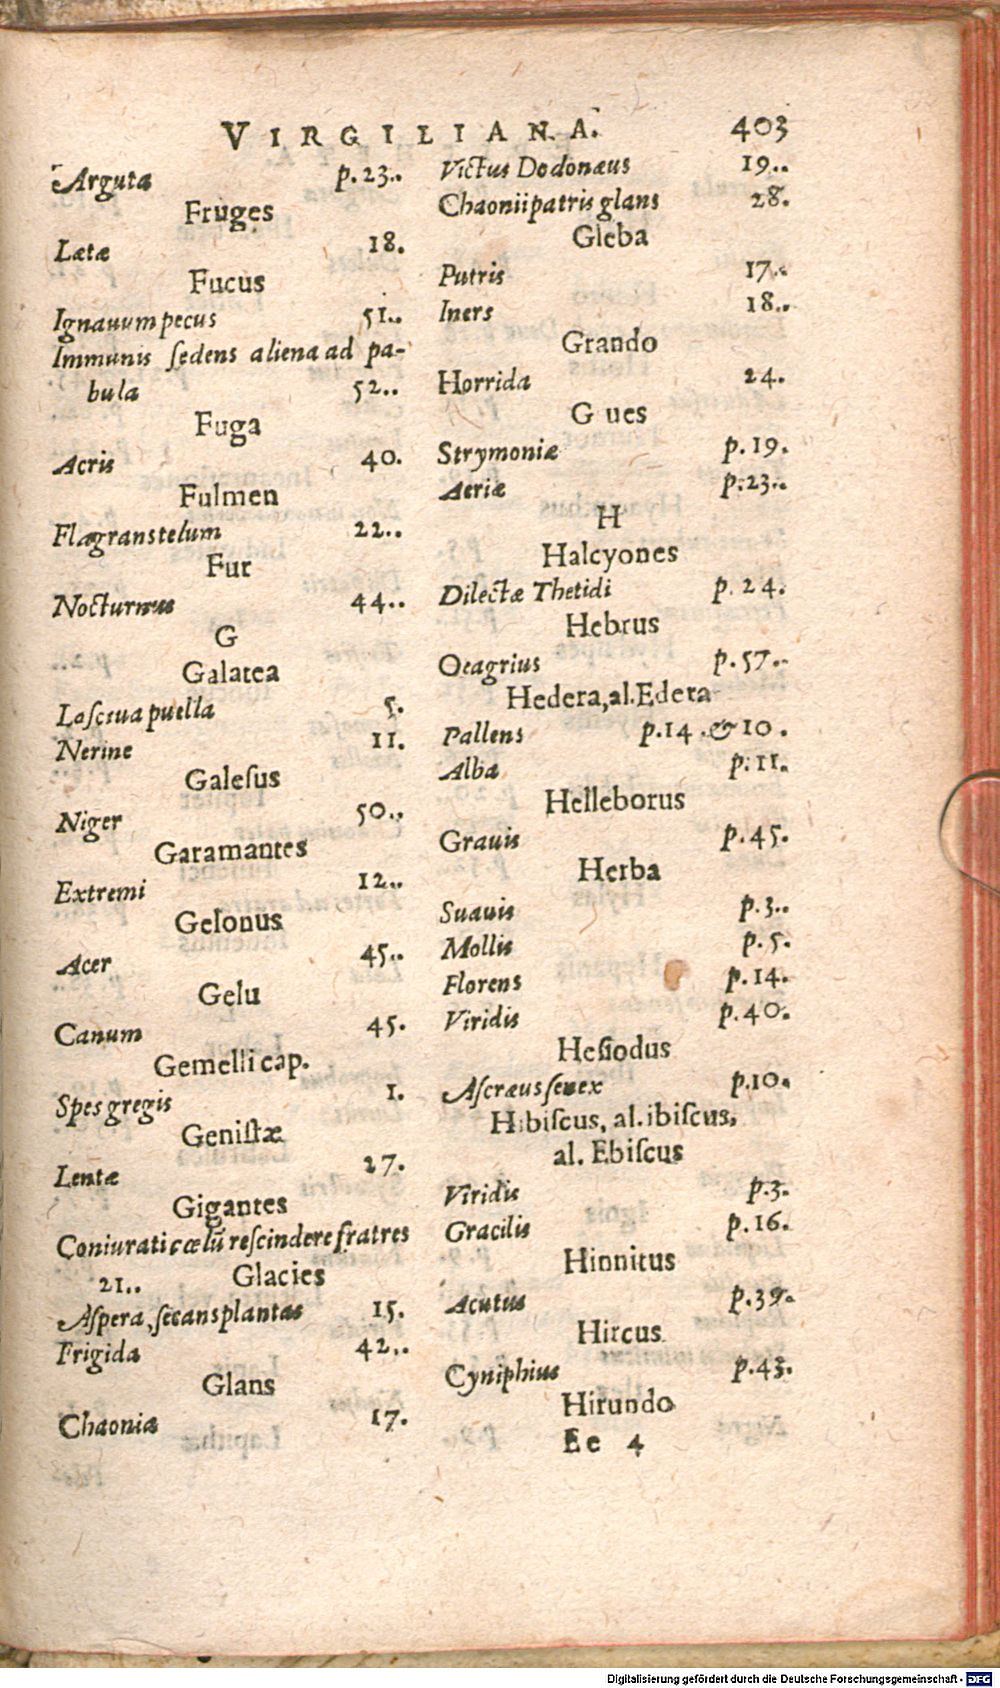 VIRGILIANA. 403
Arguta p. 23..
Fruges
Lætæ 18.
Fucus
Ignauum pecus 51..
Immunis ſedens aliena ad pa-
bula 52..
Fuga
Acris 40.
Fulmen
Flagrans telum 22..
Fur
Nocturnus 44..
G
Galatea
Laſciua puella 5.
Nerine 11.
Galeſus
Niger 50..
Garamantes
Extremi 12..
Gelonus
Acer 45..
Gelu
Canum 45.
Gemelli cap.
Spes gregis 1.
Geniſtæ
Lentæ 27.
Gigantes
Coniurati cœlū reſcindere fratres
21..
Glacies
Aſpera, ſecans plantas 15.
Frigida 42..
Glans
Chaonia 17.
Victus Dodonæus 19..
Chaonii patris glans 28.
Gleba
Putris 17..
Iners 18..
Grando
Horrida 24.
G ues
Strymoniæ p. 19.
Aeriæ p. 23..
H
Halcyones
Dilectæ Thetidi p. 24.
Hebrus
Oeagrius p. 57..
Hedera, al. Edera
Pallens p. 14. & 10.
Alba p. 11.
Helleborus
Grauis p. 45.
Herba
Suauis p. 3..
Mollis p. 5.
Florens p. 14.
Viridis p. 40.
Heſiodus
Aſcræus ſenex p. 10.
Hibiſcus, al. ibiſcus,
al. Ebiſcus
Viridis p. 3.
Gracilis p. 16.
Hinnitus
Acutus p. 39.
Hircus
Cyniphius p. 43.
Hirundo
Ee 4
Digitalisierung gefördert durch die Deutsche Forschungsgemeinschaft - DFG